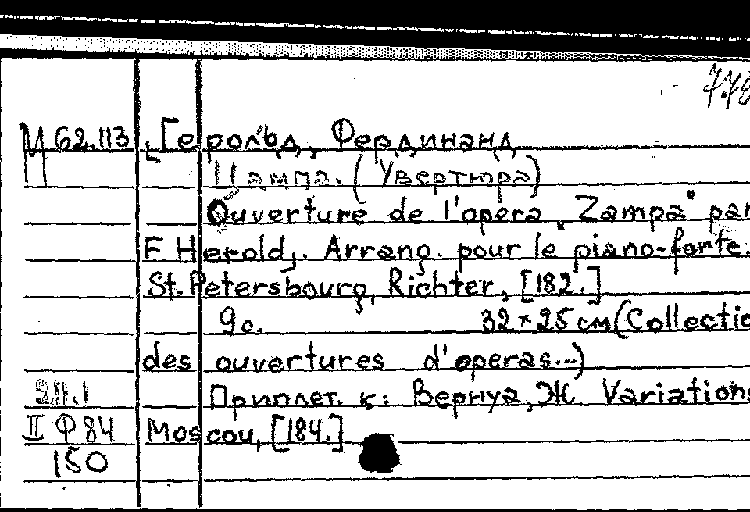 778
М 62.113 [Герольд, Фердинанд
Цампа. (Увертюра)
Ouverture de l'opera „Zampa" par
F. Herold,. Arrang. pour le piano-forte.
St. Petersbourg, Richter, [182.]
9 с. 32×25 см (Collectio
des ouvertures d'operas...)
Приплет. к: Вернуа, Ж. Variations
II Ф 84 Moscou, [184.]
150